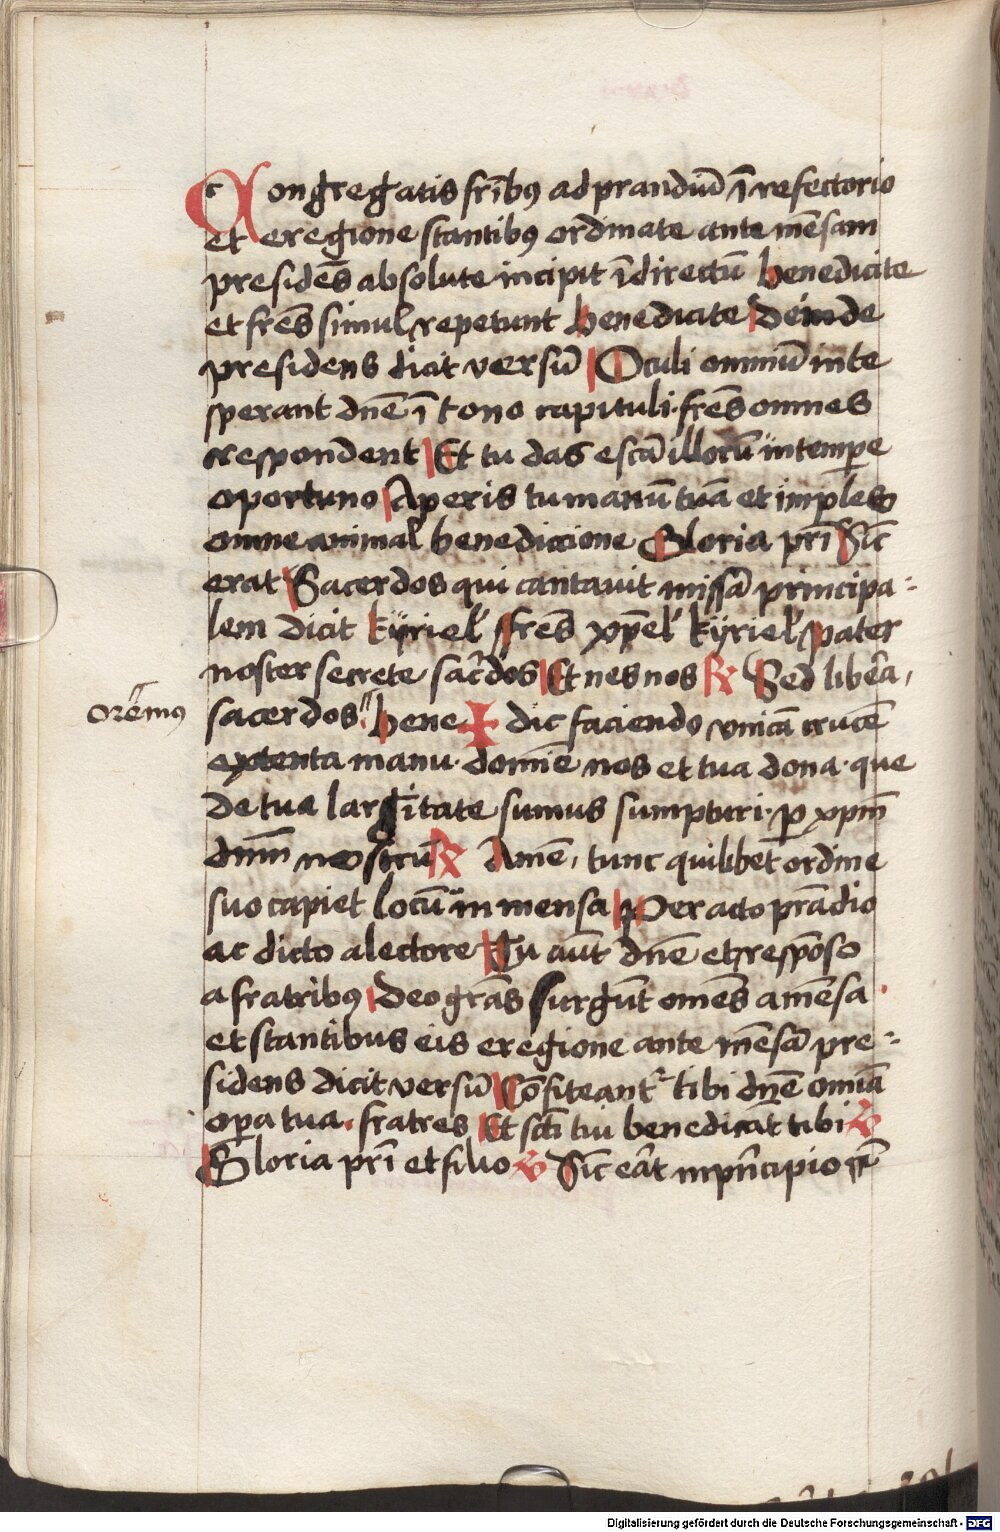 Congregatis frībꝯ ad prandiū ī refectorio
et eregione stantibꝯ ordinate ante mēsam
presidēs absolute incipit īdirectū benedicite
et frēs simul repetunt benedicite Deinde
presidens dicit versū Oculi omniū in te
sperant dn̄e ī tono capituli· frēs omnes
respondent Et tu das escā illorū in tempe
oportuno Aperis tu manū tuā et imples
omne animal benedicione Gloria pr̄i Sic̄
erat Sacerdos qui cantauit missā principa-
lem dicit kÿriel' frēs xp̄el' kÿriel' pater
noster secrete sac̄dos Et ne nos ℟ Sed libēa,
oremus
sacerdos bene ✠ dic faciendo vnicā crucē
extenta manu· domīe nos et tua dona· que
de tua largitate sumus sumpturi· ꝑ xpm̄
dnm̄ nostrū ℟ Amē, tunc quilibet ordine
suo capiet locū in mensa Peracto prādio
ac dicto a lectore Tu aūt dn̄e et respōso
a fratribꝯ Deo grās surgūt om̄es a mēsa
et stantibus eis eregione ante mēsā pre-
sidens dicit versū Cōfiteant᷑ tibi dn̄e omīa
oꝑa tua· fratres Et sct̄i tui benedicāt tibi ℣
Gloria pr̄i et filio ℣ Sic̄ eāt in pn̄cipio
Digitalisierung gefördert durch die Deutsche Forschungsgemeinschaft - DFG